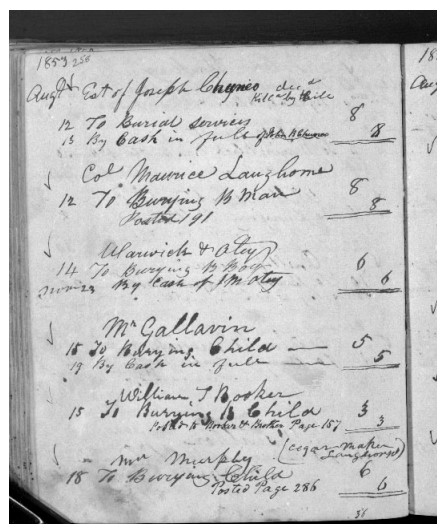 1853 258
Augt Est of Joseph Cheyneo decd
Killd by
12 To Burial services 8
13 By Cash in full of 8
Col Maurice Langhorne
12 To Burying B Man 8
Posted 191 8
Warwick & Otey
14 To Burying B Boy 6
23 By Cash of J M Otey 6
Mr Gallavin
15 To Burying Child 5
19 By Cash in full 5
William T Booker
15 To Burying B Child 3
Posted to Booker & Brother Page 157 3
Mr Murphy (cegar maker
Langhorns)
18 To Burying Child 6
Posted Page 286 6